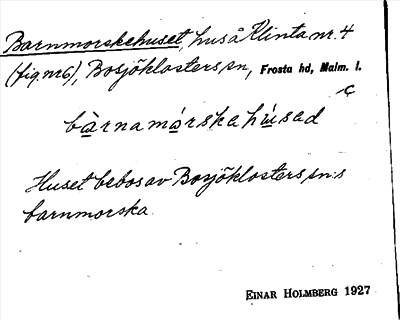 Barnmorskehuset, hus å Klinta nr. 4
(fig. nr 6), Bosjöklosters sn, Frosta hd, Malm. l.
c
bàrnamárskahúsad
Huset bebos av Bosjöklosters sn:s
barnmorska.
EINAR HOLMBERG 1927